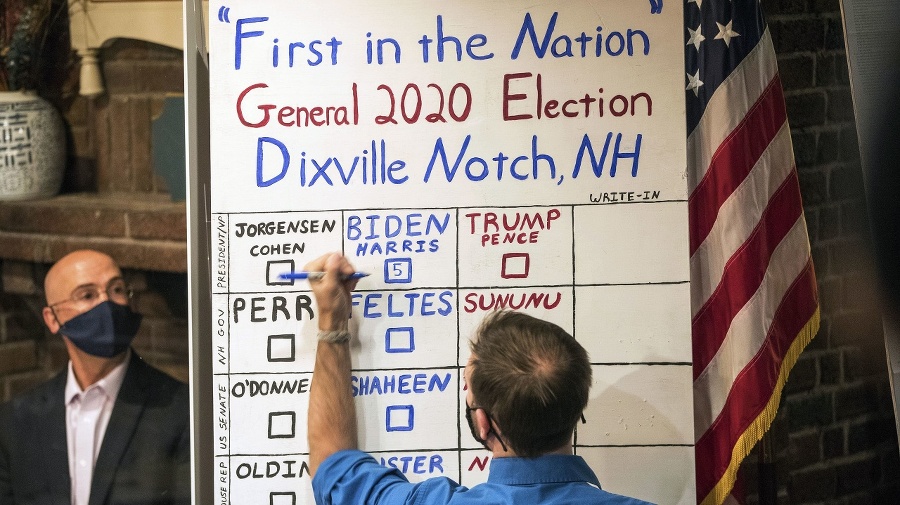 "First in the Nation"
General 2020 Election
Dixville Notch, NH
WRITE-IN
PRESIDENT/VP
JORGENSEN
COHEN
BIDEN
HARRIS
5
TRUMP
PENCE
NH GOV
PERR
FELTES
SUNUNU
US SENATE
O'DONNE
SHAHEEN
OUSE REP
OLDIN
STER
N